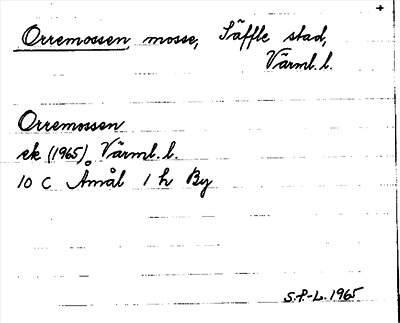 +
Orremossen, mosse, Säffle stad,
Värml. l.
Orremossen
ek (1965) Värml. l.
10 C Åmål 1 h By
S.P.-L. 1965